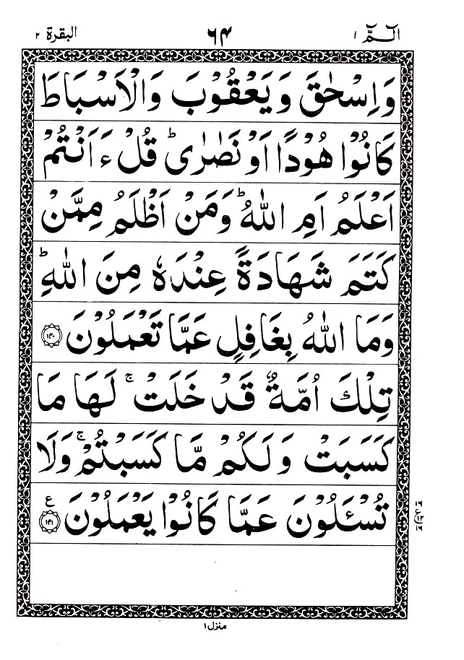 الٓمّٓ ١ ٦٤ البقرة ٢
وَاِسْحٰقَ وَيَعْقُوْبَ وَالْاَسْبَاطَ
كَانُوْا هُوْدًا اَوْ نَصٰرٰى ؕ قُلْ ءَاَنْتُمْ
اَعْلَمُ اَمِ اللّٰهُ ؕ وَمَنْ اَظْلَمُ مِمَّنْ
كَتَمَ شَهَادَةً عِنْدَهٗ مِنَ اللّٰهِ ؕ
وَمَا اللّٰهُ بِغَافِلٍ عَمَّا تَعْمَلُوْنَ ﴿١٤٠﴾
تِلْكَ اُمَّةٌ قَدْ خَلَتْ ۚ لَهَا مَا
كَسَبَتْ وَلَكُمْ مَّا كَسَبْتُمْ ۚ وَلَا
تُسْـَٔلُوْنَ عَمَّا كَانُوْا يَعْمَلُوْنَ ﴿١٤١﴾ ع
منزل ١